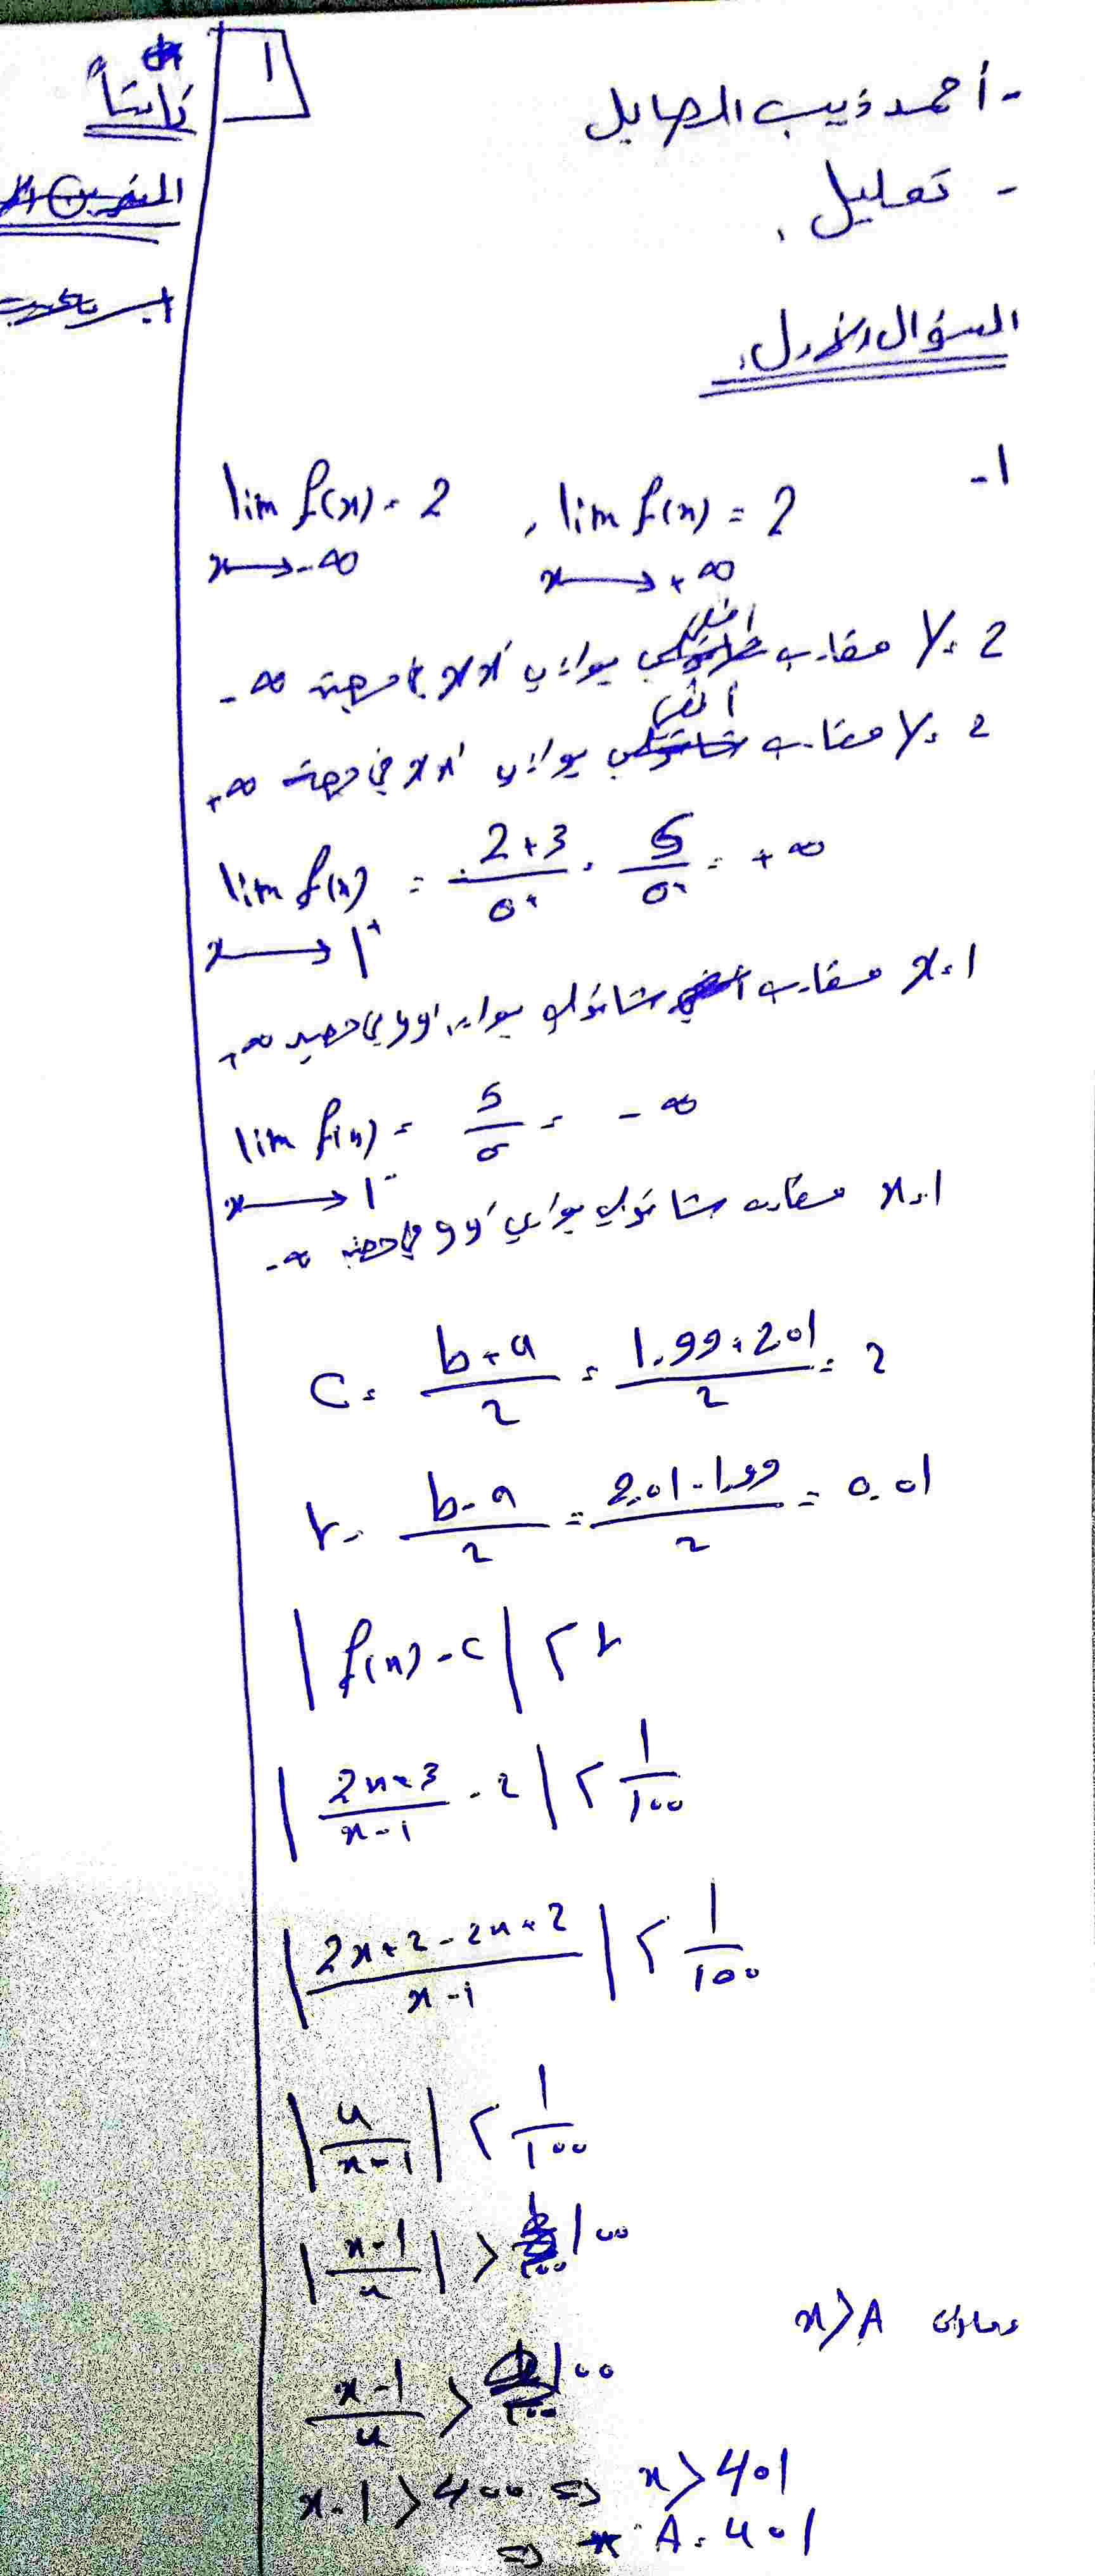 1
- أحمد ذيب الصايل
- تعليل .
السؤال الأول:
1-
lim f(x) = 2 , lim f(x) = 2
x → -∞ x → +∞
y = 2 مقارب افقي يوازي xx' في جهة -∞
y = 2 مقارب افقي يوازي xx' في جهة +∞
lim f(x) = 2+3/0+ = 5/0+ = +∞
x → 1+
x = 1 مقارب شاقولي يوازي yy' في جهة +∞
lim f(x) = 5/0- = -∞
x → 1-
x = 1 مقارب شاقولي يوازي yy' في جهة -∞
C = b+a/2 = 1.99+2.01/2 = 2
r = b-a/2 = 2.01-1.99/2 = 0.01
|f(x) - c| < r
|2x+3/x-1 - 2| < 1/100
|2x+2-2x+2/x-1| < 1/100
|4/x-1| < 1/100
|x-1/4| > 100
x > A
x-1/4 > 100
x-1 > 400 ⇒ x > 401
⇒ A = 401
ثانياً